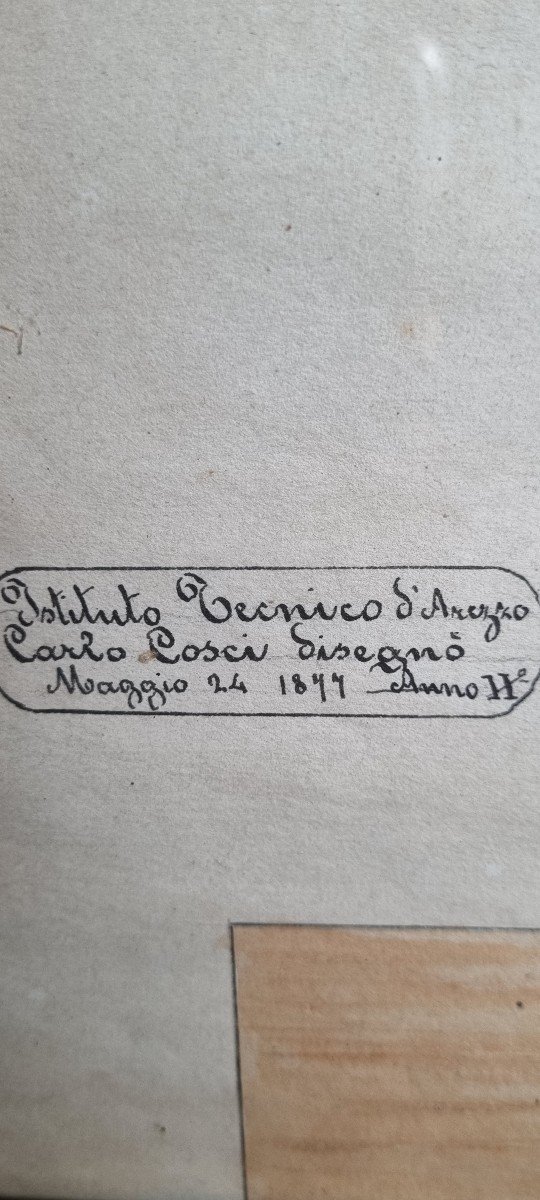 Istituto Tecnico d'Arezzo
Carlo Cosci disegnò
Maggio 24 1877 Anno IIº